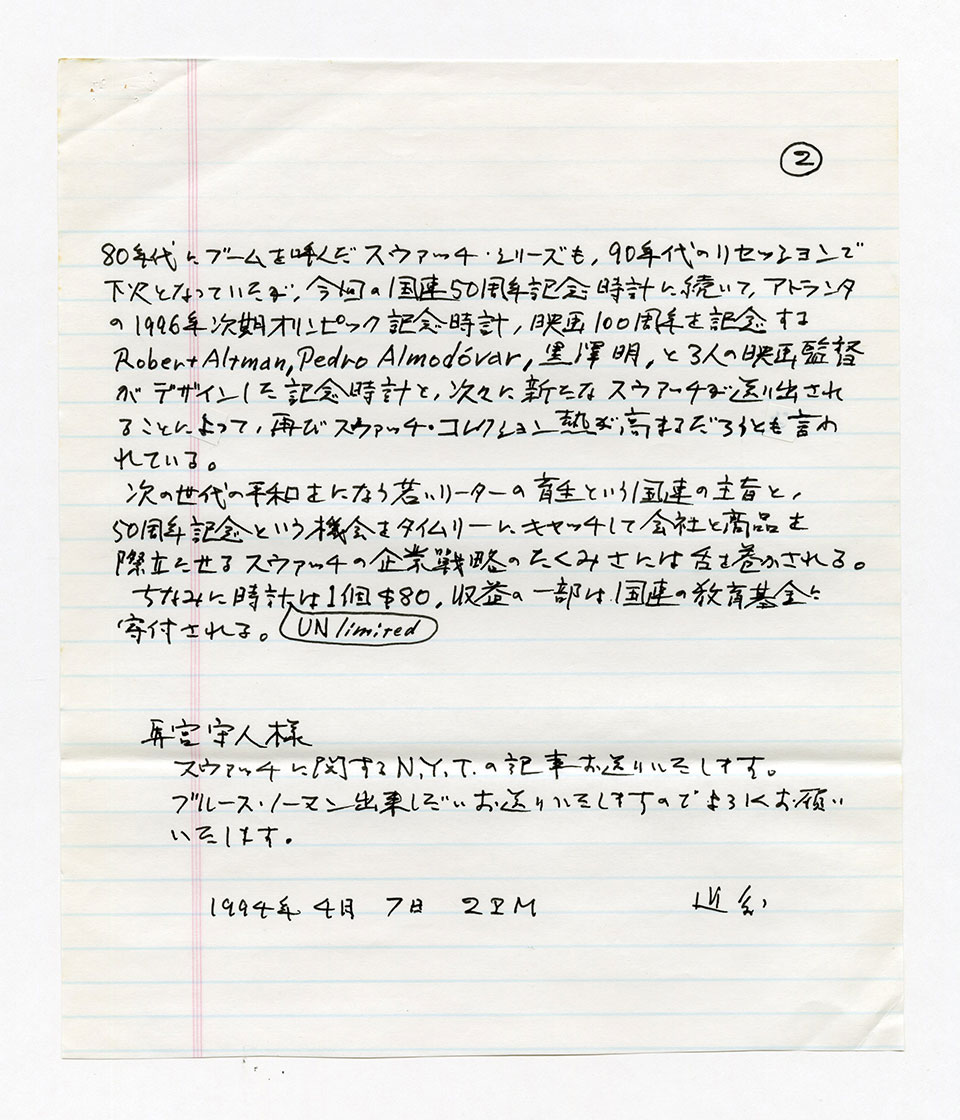 ②
80年代にブームを呼んだスウァッチ・シリーズも,90年代のリセッションで
下火となっていたが,今回の国連50周年記念時計に続いて,アトランタ
の1996年次期オリンピック記念時計,映画100周年を記念する
Robert Altman, Pedro Almodóvar, 黒澤明,と3人の映画監督
がデザインした記念時計と,次々に新たなスウァッチが送り出され
ることによって,再びスウァッチ・コレクション熱が高まるだろうとも言わ
れている。
次の世代の平和をになう若いリーターの育生という国連の主旨と,
50周年記念という機会をタイムリーにキャッチして会社と商品を
際立たせるスウァッチの企業戦略のたくみさには舌を巻かされる。
ちなみに時計は1個$80,収益の一部は国連の教育基金に
寄付される。 UNlimited
宮守人様
スウァッチに関するN.Y.T.の記事お送りいたします。
ブルース・ノーマン出来しだいお送りいたしますのでよろしくお願い
いたします。
1994年 4月 7日 2PM